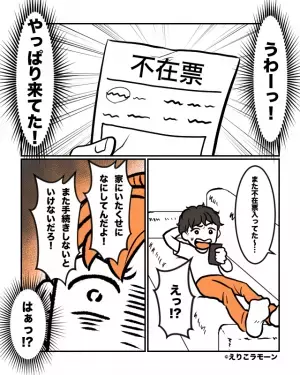 うわーっ！
不在票
やっぱり来てた！
また不在票入ってた〜…
えっ！？
家にいたくせに
なにしてんだよ！
また手続きしないと
いけないだろ！
はぁっ！？
©えりこラモーン